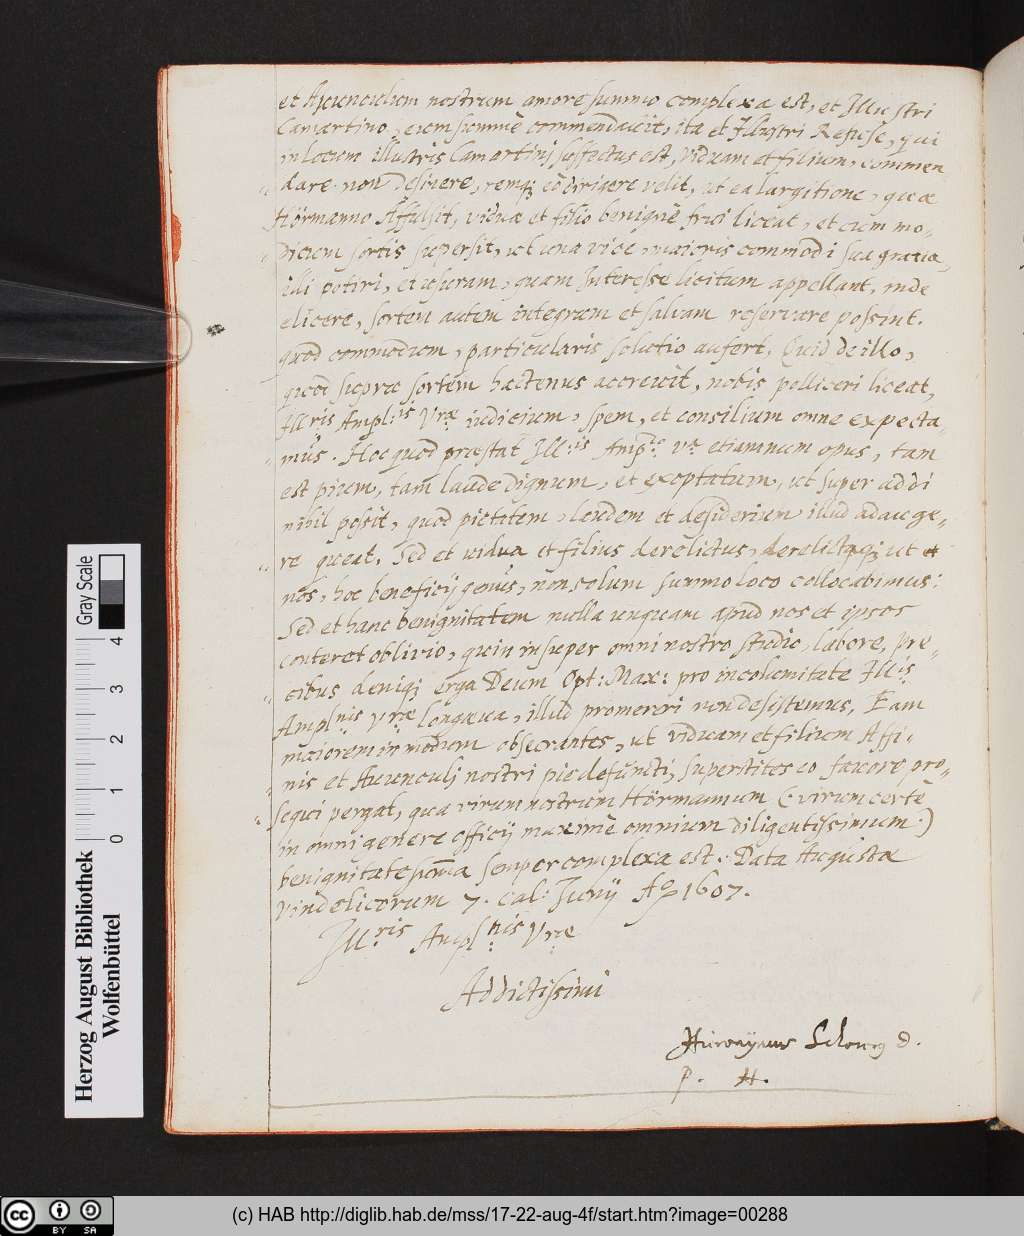 et Avunculum nostrum amore summo complexa est, et Illustri
Camartino, eum summè commendavit, ita et Illustri Refuse, qui
in locum illustris Camartinj suffectus est, viduam et filium, commen
dare non desinere, remq; eò dirigere velit, ut ea largitione, quæ
Hörmanno affulsit, viduæ et filio benignè frui liceat, et cum mo-
dicum sortis supersit, ut una vice, maioris commodi sua gratia,
illi potiri, et usuram, quam Interesse licitum appellant, inde
elicere, sortem autem integram et salvam reservare possint.
quod commodum, particularis solutio aufert. Quid de illo,
quod supra sortem hactenus accrevit, nobis polliceri liceat,
Ill:ris Ampl:nis Vræ iudicium, spem, et consilium omne expecta-
mus. Hoc quod præstat Ill:is Amp:do vª etiamnum opus, tam
est pium, tam laude dignum, et exoptatum, ut super addi
nihil possit, quod pietatem, laudem et desiderium illud adauge-
re queat. Sed et vidua et filius derelictus, derelictaq; ut et
nos, hoc beneficÿ genus, non solum summo loco collocabimus:
Sed et hanc benignitatem nulla unquam apud nos et ipsos
conteret oblivio, quin insuper omni nostro studio, labore, pre-
cibus deniq; erga Deum Opt: Max: pro incolumitate Ill:is
Ampl:nis vræ longæva, illud promereri non desistemus, Eam
maiorem in modum obsecrantes, ut viduam et filium Affi-
nis et Avunculj nostri pie defuncti, superstites eo favore pro-
sequi pergat, qua virum nostrum Hörmannum (: virum certè
in omni genere officÿ maximè omnium diligentissimum:)
benignitate summa semper complexa est. Data Augustæ
Vindelicorum 7. cal: Junÿ Aº 1607.
Ill:ris Ampl:nis Vræ
Addictissimi
Hieronÿmus
P. H.
Herzog August Bibliothek
Wolfenbüttel
0 1 2 3 4
Gray Scale
cc BY SA
(c) HAB http://diglib.hab.de/mss/17-22-aug-4f/start.htm?image=00288